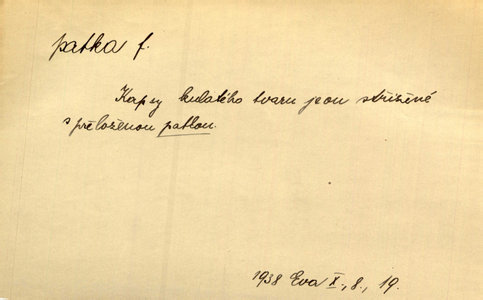 patka f.
Kapsy kulatého tvaru jsou střižené
s přeloženou patkou.
1938 Eva X., 8., 19.